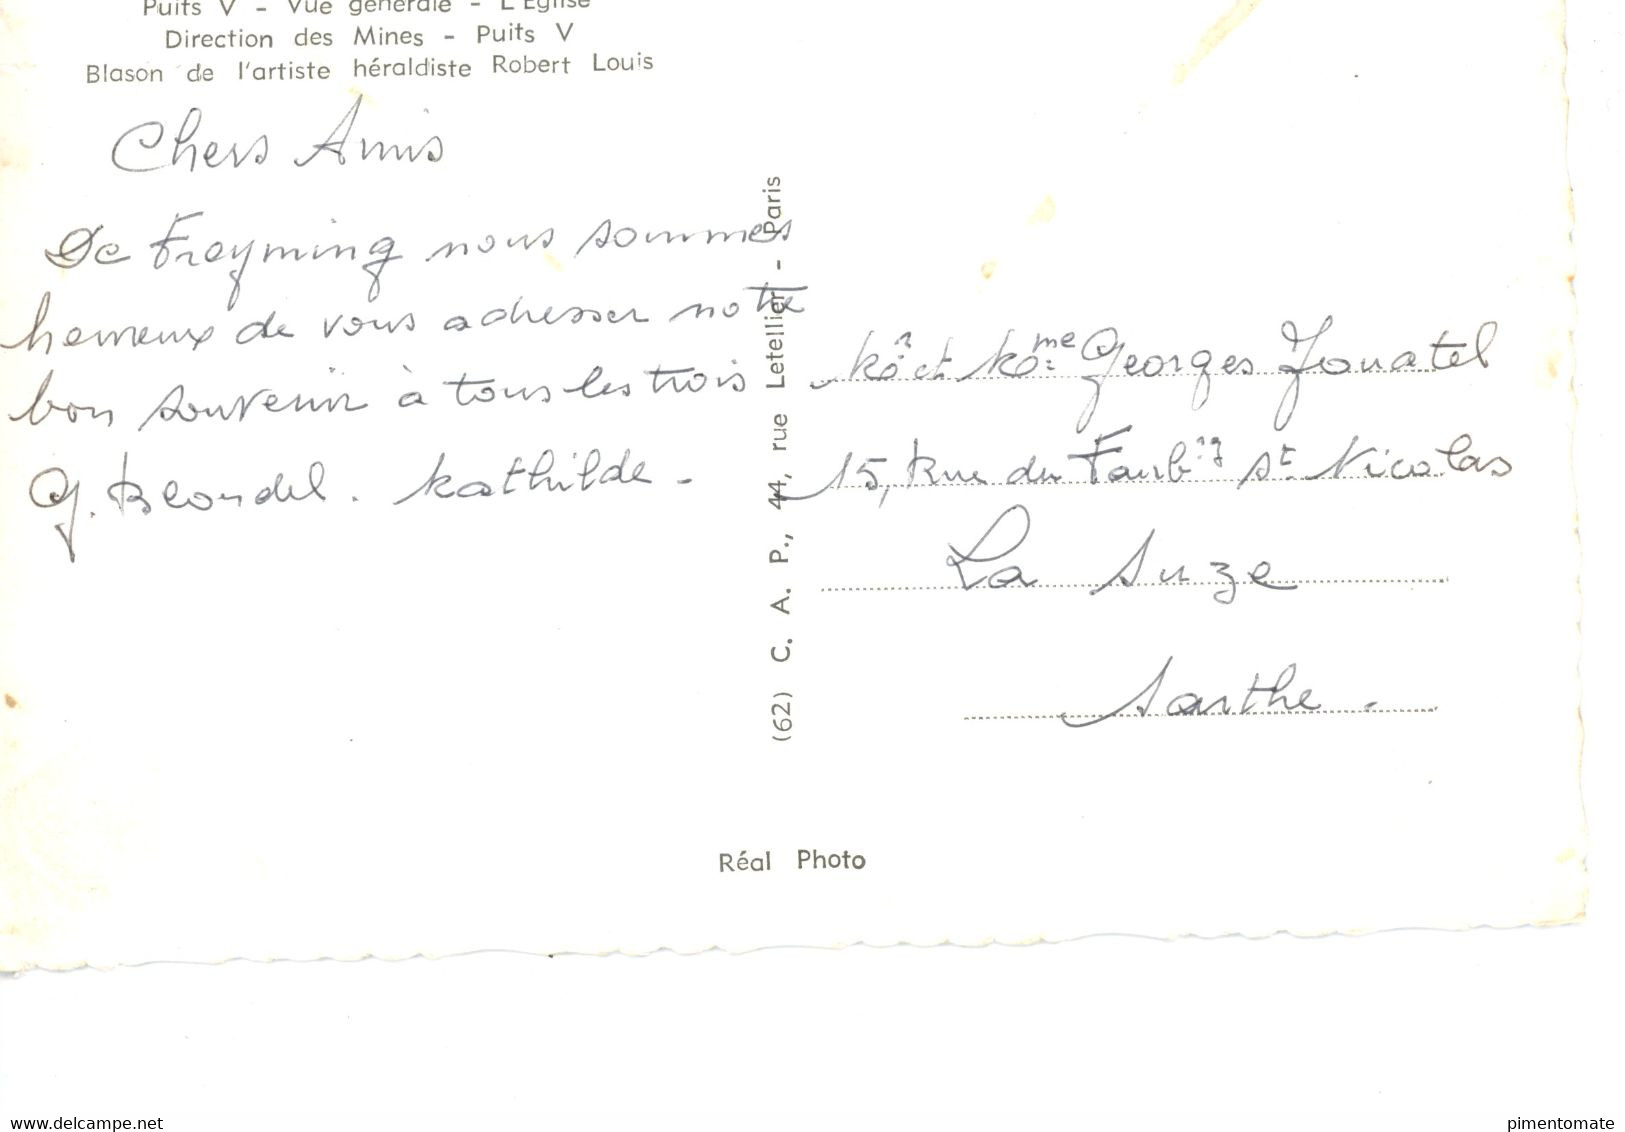 Puits V - Vue générale - L'Eglise
Direction des Mines - Puits V
Blason de l'artiste héraldiste Robert Louis
Chers Amis
De Freyming nous sommes
heureux de vous adresser notre
bon souvenir à tous les trois
G. Blondel. Mathilde.
(62) C. A. P., 44, rue Letellier - Paris
Mr et Mme Georges Jouatel
15, Rue du Faubg St Nicolas
La Suze
Sarthe.
Réal Photo
delcampe.net
pimentomate